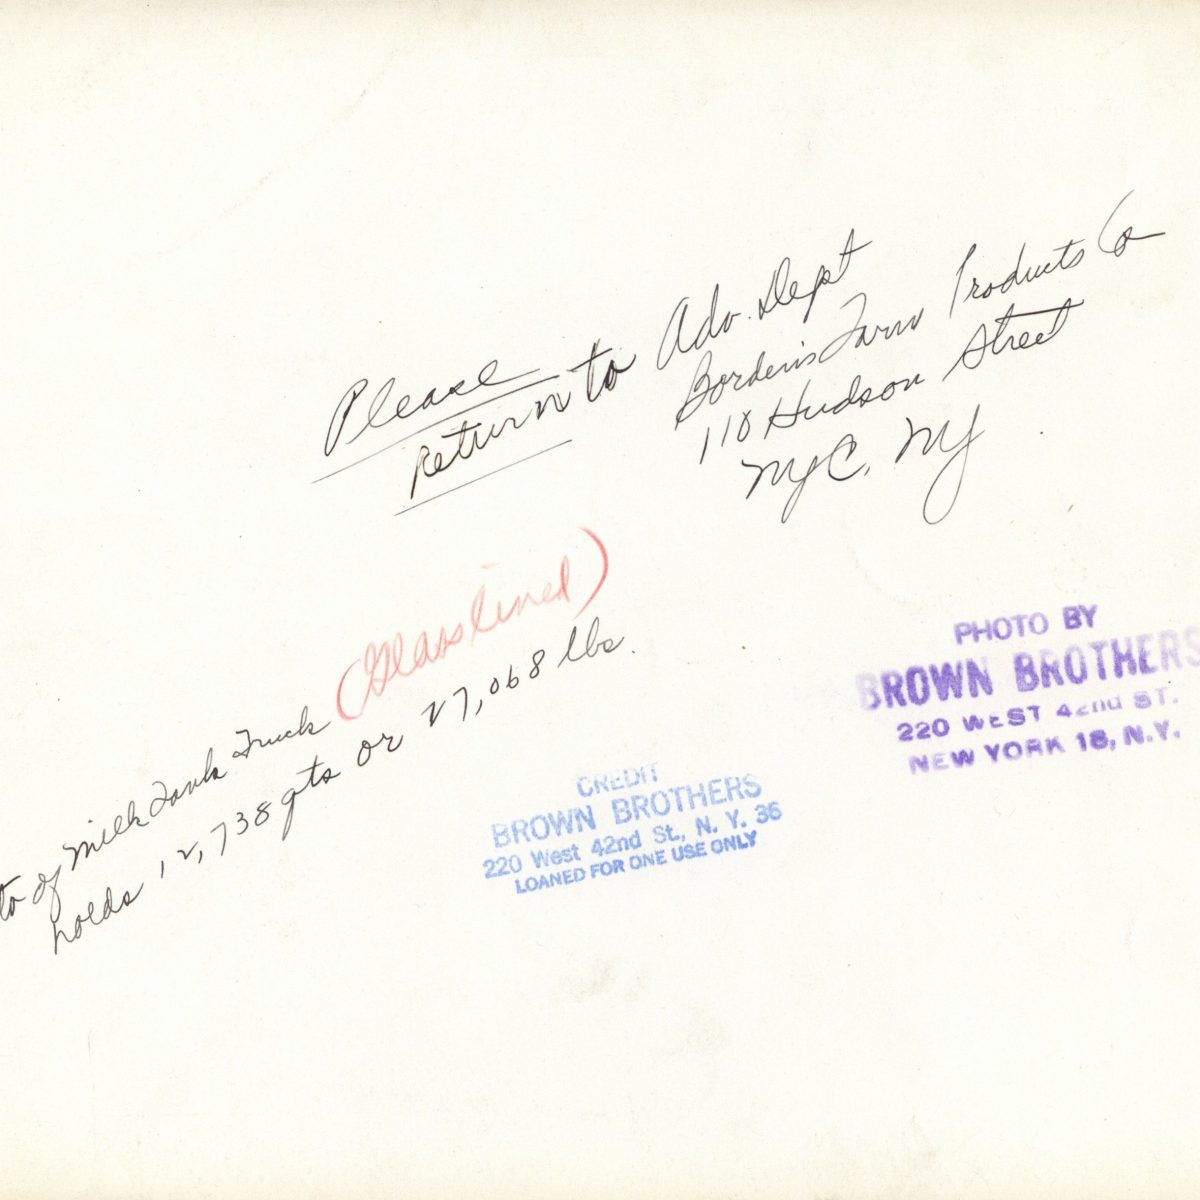 Please
Return to Adv. Dept
Borden's Farm Products Co
110 Hudson Street
NYC, NY
(Glass lined)
to of Milk Tank Truck
holds 12,738 qts or 27,068 lbs.
PHOTO BY
BROWN BROTHERS
220 WEST 42nd ST.
NEW YORK 18, N.Y.
CREDIT
BROWN BROTHERS
220 West 42nd St., N. Y. 36
LOANED FOR ONE USE ONLY